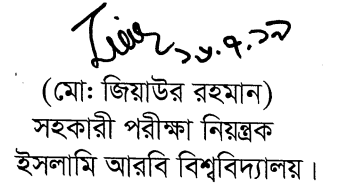 ১৮.৭.১৯
(মো: জিয়াউর রহমান)
সহকারী পরীক্ষা নিয়ন্ত্রক
ইসলামি আরবি বিশ্ববিদ্যালয়।